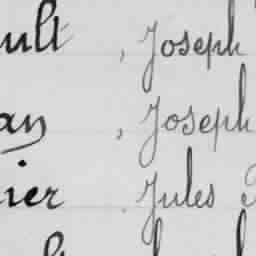 ult, Joseph
an, Joseph
ier, Jules